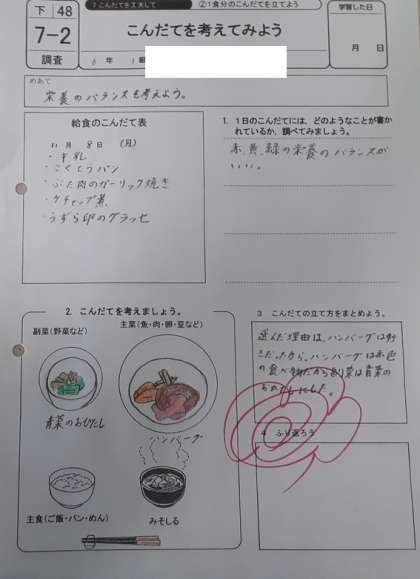 下 48
7-2
調査
7 こんだてを工夫して
②1食分のこんだてを立てよう
こんだてを考えてみよう
6 年 1 組
学習した日
月 日
めあて
栄養のバランスを考えよう。
給食のこんだて表
11月 8日 (月)
・牛乳
・こくとうパン
・ぶた肉のガーリック焼き
・ケチャップ煮
・うずら卵のグラッセ
1. 1日のこんだてには、どのようなことが書か
れているか、調べてみましょう。
赤、黄、緑の栄養のバランスが
いい。
2. こんだてを考えましょう。
副菜(野菜など)
主菜(魚・肉・卵・豆など)
青菜のおひたし
ハンバーグ
主食(ご飯・パン・めん)
みそしる
3 こんだての立て方をまとめよう。
選んだ理由は、ハンバーグは好
きだから、ハンバーグは赤色
の食べ物だから副菜は青菜の
おひたしにした。
4 ふり返ろう